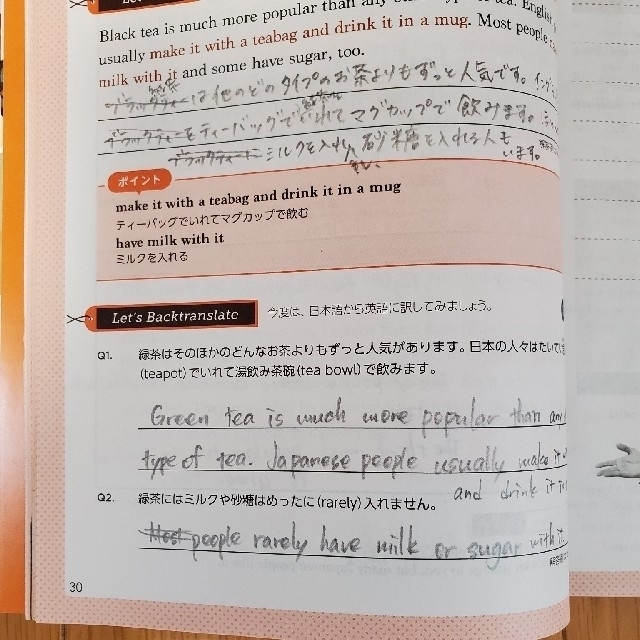 Let's
Black tea is much more popular than any type of tea. English
usually make it with a teabag and drink it in a mug. Most people
milk with it and some have sugar, too.
ブラックティーは他のどのタイプのお茶よりもずっと人気です。
ブラックティーをティーバッグでいれてマグカップで飲みます。
ブラックティーに ミルクを入れ、砂糖を入れる人も
います。
ポイント
make it with a teabag and drink it in a mug
ティーバッグでいれてマグカップで飲む
have milk with it
ミルクを入れる
Let's Backtranslate 今度は、日本語から英語に訳してみましょう。
Q1. 緑茶はそのほかのどんなお茶よりもずっと人気があります。日本の人々はたいてい
(teapot)でいれて湯飲み茶碗(tea bowl)で飲みます。
Green tea is much more popular than any
type of tea. Japanese people usually make it
and drink it in
Q2. 緑茶にはミルクや砂糖はめったに(rarely)入れません。
Most people rarely have milk or sugar with it.
30